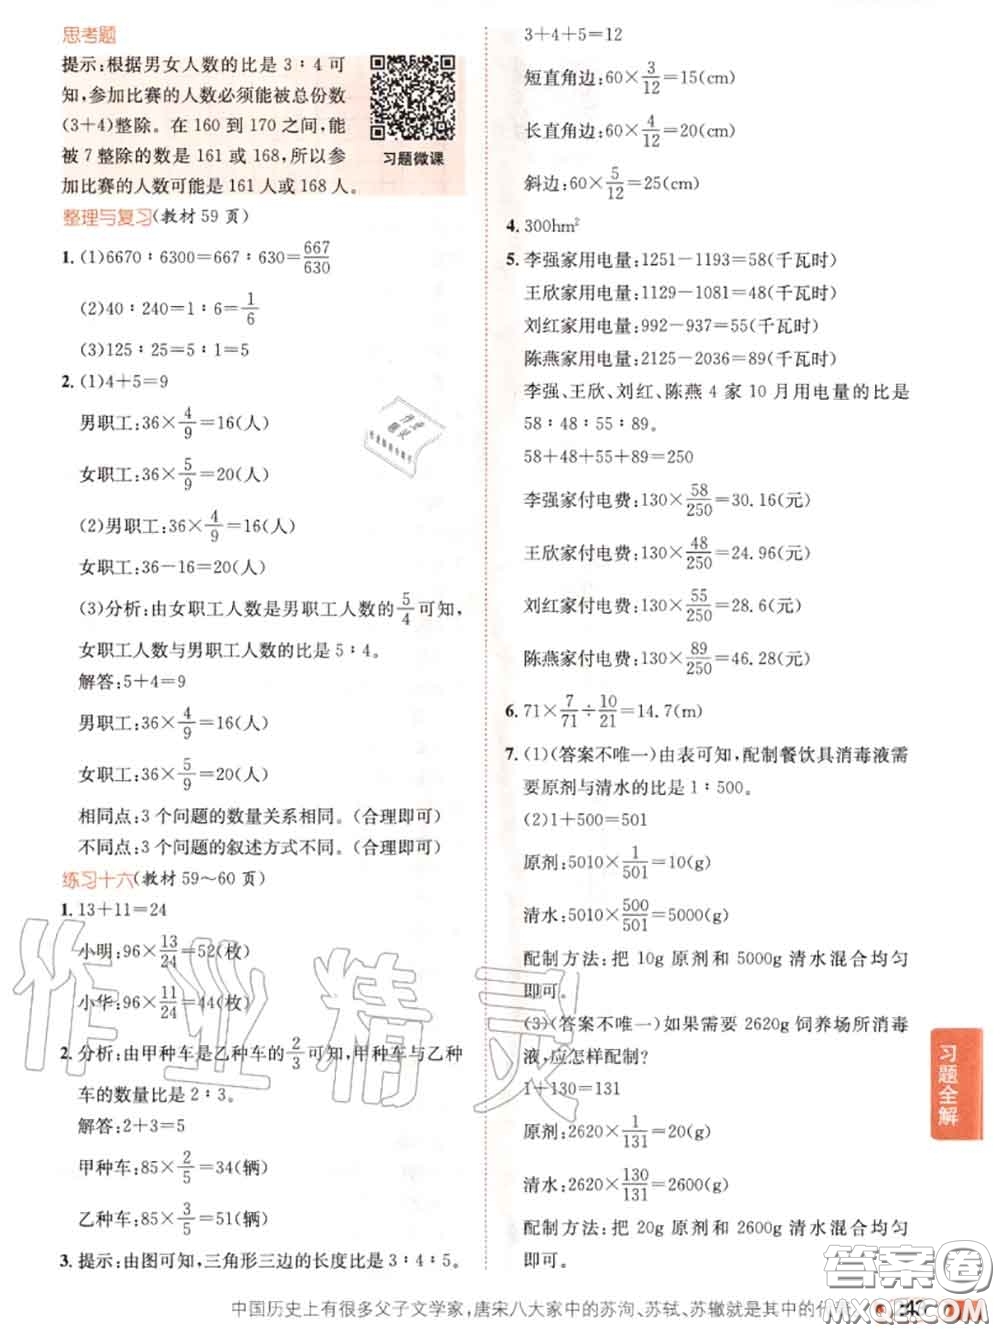 思考题
提示:根据男女人数的比是 3∶4 可
知,参加比赛的人数必须能被总份数
(3+4)整除。在 160 到 170 之间,能
被 7 整除的数是 161 或 168,所以参
加比赛的人数可能是 161 人或 168 人。
习题微课
整理与复习(教材 59 页)
1. (1)6670∶6300=667∶630=667/630
(2)40∶240=1∶6=1/6
(3)125∶25=5∶1=5
2. (1)4+5=9
男职工:36×4/9=16(人)
女职工:36×5/9=20(人)
(2)男职工:36×4/9=16(人)
女职工:36-16=20(人)
(3)分析:由女职工人数是男职工人数的5/4可知,
女职工人数与男职工人数的比是 5∶4。
解答:5+4=9
男职工:36×4/9=16(人)
女职工:36×5/9=20(人)
相同点:3 个问题的数量关系相同。(合理即可)
不同点:3 个问题的叙述方式不同。(合理即可)
练习十六(教材 59~60 页)
1. 13+11=24
小明:96×13/24=52(枚)
小华:96×11/24=44(枚)
2. 分析:由甲种车是乙种车的2/3可知,甲种车与乙种
车的数量比是 2∶3。
解答:2+3=5
甲种车:85×2/5=34(辆)
乙种车:85×3/5=51(辆)
3. 提示:由图可知,三角形三边的长度比是 3∶4∶5。
3+4+5=12
短直角边:60×3/12=15(cm)
长直角边:60×4/12=20(cm)
斜边:60×5/12=25(cm)
4. 300hm²
5. 李强家用电量:1251-1193=58(千瓦时)
王欣家用电量:1129-1081=48(千瓦时)
刘红家用电量:992-937=55(千瓦时)
陈燕家用电量:2125-2036=89(千瓦时)
李强、王欣、刘红、陈燕 4 家 10 月用电量的比是
58∶48∶55∶89。
58+48+55+89=250
李强家付电费:130×58/250=30.16(元)
王欣家付电费:130×48/250=24.96(元)
刘红家付电费:130×55/250=28.6(元)
陈燕家付电费:130×89/250=46.28(元)
6. 71×7/71÷10/21=14.7(m)
7. (1)(答案不唯一)由表可知,配制餐饮具消毒液需
要原剂与清水的比是 1∶500。
(2)1+500=501
原剂:5010×1/501=10(g)
清水:5010×500/501=5000(g)
配制方法:把 10g 原剂和 5000g 清水混合均匀
即可。
(3)(答案不唯一)如果需要 2620g 饲养场所消毒
液,应怎样配制?
1+130=131
原剂:2620×1/131=20(g)
清水:2620×130/131=2600(g)
配制方法:把 20g 原剂和 2600g 清水混合均匀
即可。
习题全解
作业精灵
答案圈
中国历史上有很多父子文学家,唐宋八大家中的苏洵、苏轼、苏辙就是其中的代